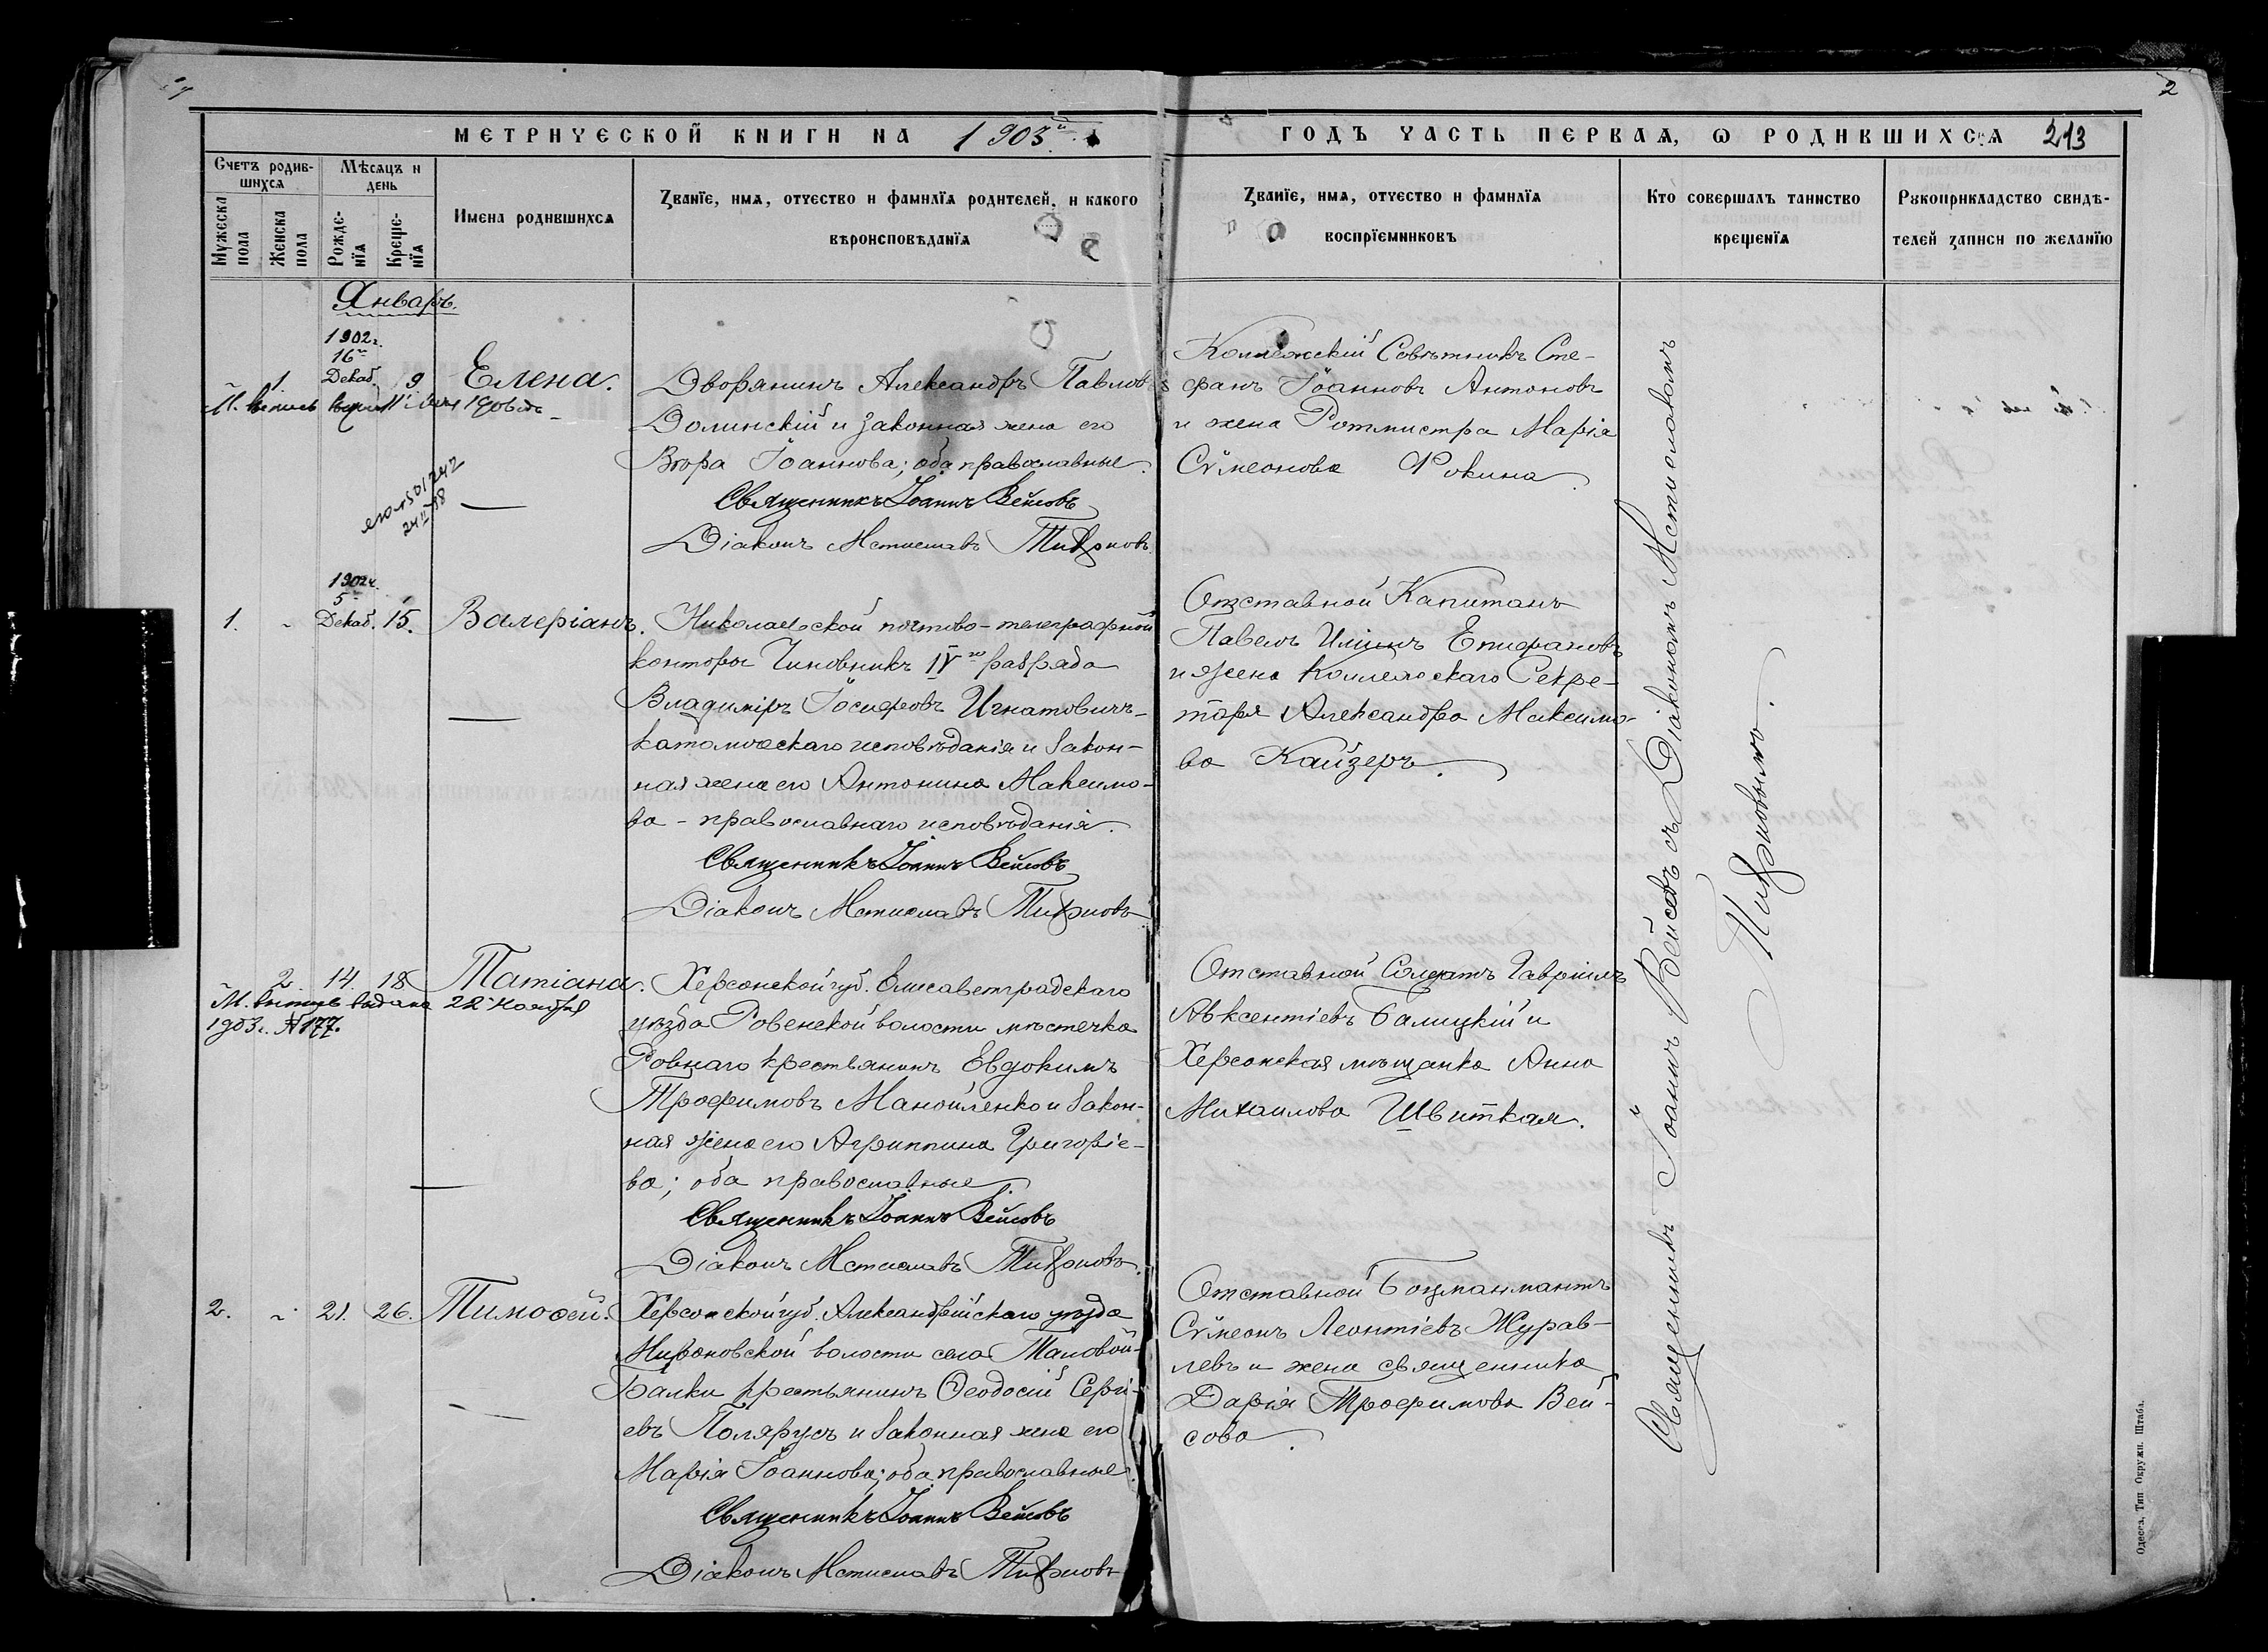 2
МЕТРИЧЕСКОЙ КНИГИ НА 1903й
ГОДЪ ЧАСТЬ ПЕРВАЯ, Ѡ РОДИВШИХСЯ 213
Счетъ родив-
шихся
Мужеска
пола
Женска
пола
Мѣсяцъ и
день
Рожде-
нія
Креще-
нія
Имена родившихся
Званіе, имя, отчество и фамилія родителей, и какого
вѣроисповѣданія
Званіе, имя, отчество и фамилія
воспріемниковъ
Кто совершалъ таинство
крещенія
Рукоприкладство свидѣ-
телей записи по желанію
Январь.
1902г.
16го
1. Декаб. 9 Елена.
М. выпись 11
24 II
Дворянинъ Александръ Павловъ
Долинскій и законная жена его
Вѣра Іоаннова; оба православные.
Священникъ Іоаннъ Вейсовъ
Діаконъ Мстиславъ
Коллежскій Совѣтникъ Сте-
фанъ Іоанновъ Антоновъ
и жена Ротмистра Марія
Сѵмеонова Фокина.
1902г.
5
1. - Декаб. 15. Валеріанъ.
Николаевской почтово-телеграфной
конторы Чиновникъ IVго разряда
Владиміръ Іосифовъ Игнатовичъ-
католическаго исповѣданія и закон-
ная жена его Антонина Максимо-
ва - православнаго исповѣданія.
Священникъ Іоаннъ Вейсовъ
Діаконъ Мстиславъ
Отставной Капитанъ
Павелъ Епифановъ
и жена Коллежскаго Секре-
таря Александра Максимо-
ва Кайзеръ.
2. 14. 18 Татіана.
М. выпись выдана 22 ноября
1903г. №177.
Херсонской губ. Елисаветградскаго
уѣзда Ровенской волости мѣстечка
Ровнаго крестьянинъ Евдокимъ
Трофимовъ Манойленко и закон-
ная жена его Агриппина Григоріе-
ва; оба православные.
Священникъ Іоаннъ Вейсовъ
Діаконъ Мстиславъ
Отставной Солдатъ Гавріилъ
Авксентіевъ Галицкій и
Херсонская мѣщанка Анна
Михаилова Швиткая.
2. - 21. 26. Тимоѳей.
Херсонской губ. Александрійскаго уѣзда
волости села Таловой-
Балки крестьянинъ Ѳеодосій Сергі-
евъ Полярусъ и законная жена его
Марія Іоаннова; оба православные.
Священникъ Іоаннъ Вейсовъ
Діаконъ Мстиславъ
Отставной Боцманматъ
Сѵмеонъ Леонтіевъ Журав-
левъ и жена священника
Дарія Трофимова Вей-
сова.
Священникъ Іоаннъ Вейсовъ съ Діакономъ Мстиславомъ
Одесса, Тип Окружн. Штаба.